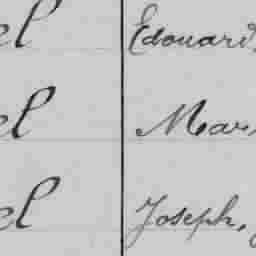 el Edouard
el Mar
el Joseph,